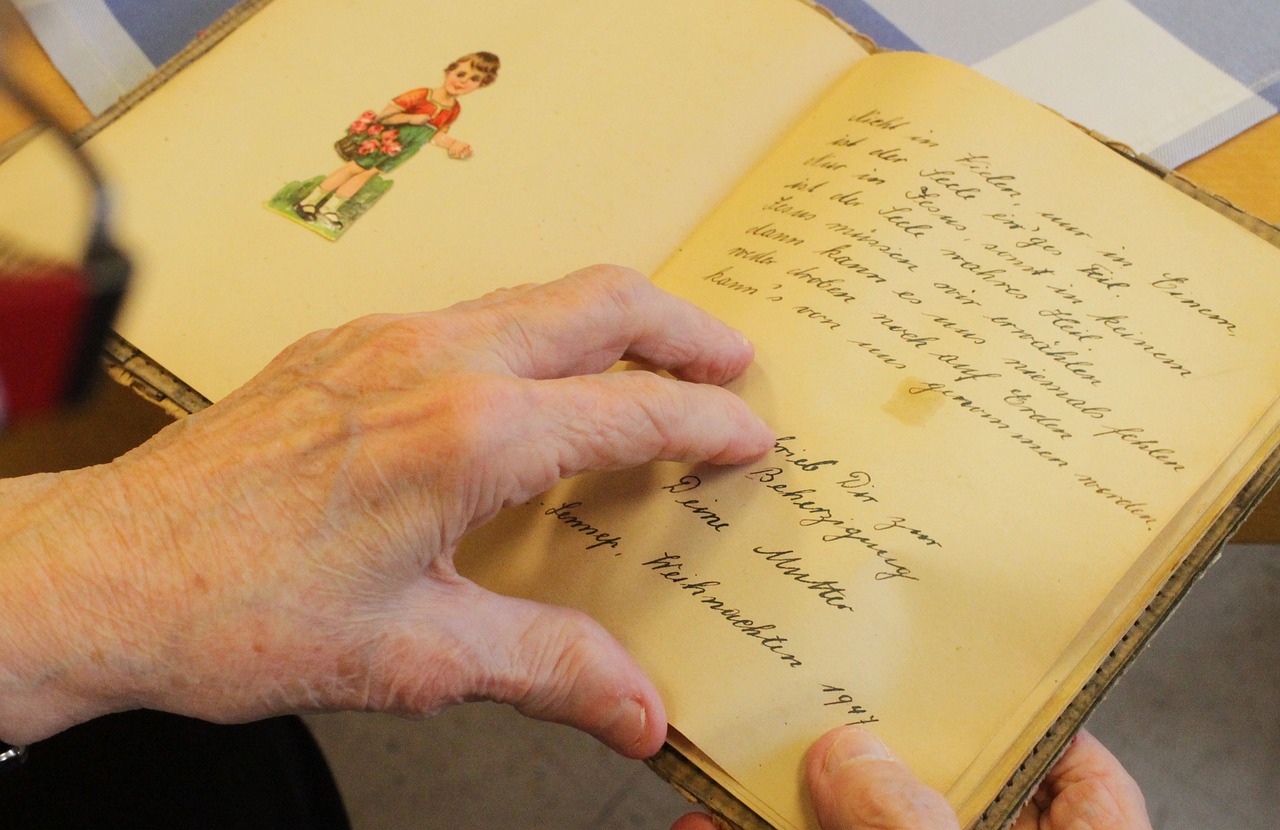 Nicht in Vielen, nur in Einem,
ist der Seele ew'ges Teil.
Nur in Jesus, sonst in keinem
ist der Seele wahres Heil.
Jesus müssen wir erwählen
dann kann es uns niemals fehlen
weder droben noch auf Erden
kann's von uns genommen werden.
rieb Dir zur
Beherzigung
Deine Mutter
Lennep, Weihnachten 1947